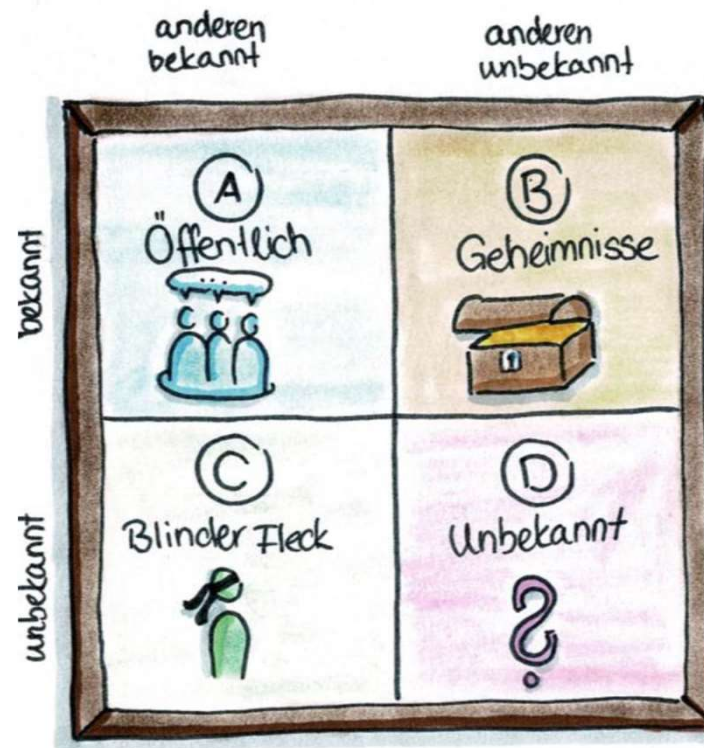 anderen
bekannt
anderen
unbekannt
bekannt
A
Öffentlich
...
B
Geheimnisse
unbekannt
C
Blinder Fleck
D
Unbekannt
?